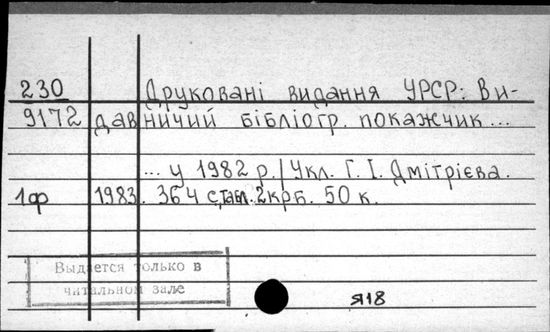 230 Друковані видання УРСР: Ви-
9172 давничий бібліогр. покажчик...
... у 1982 р./Укл. Г. І. Дмітрієва.
1ф 1983. 364 с., табл. 2крб. 50 к.
Выдается только в
читальном зале
Я18